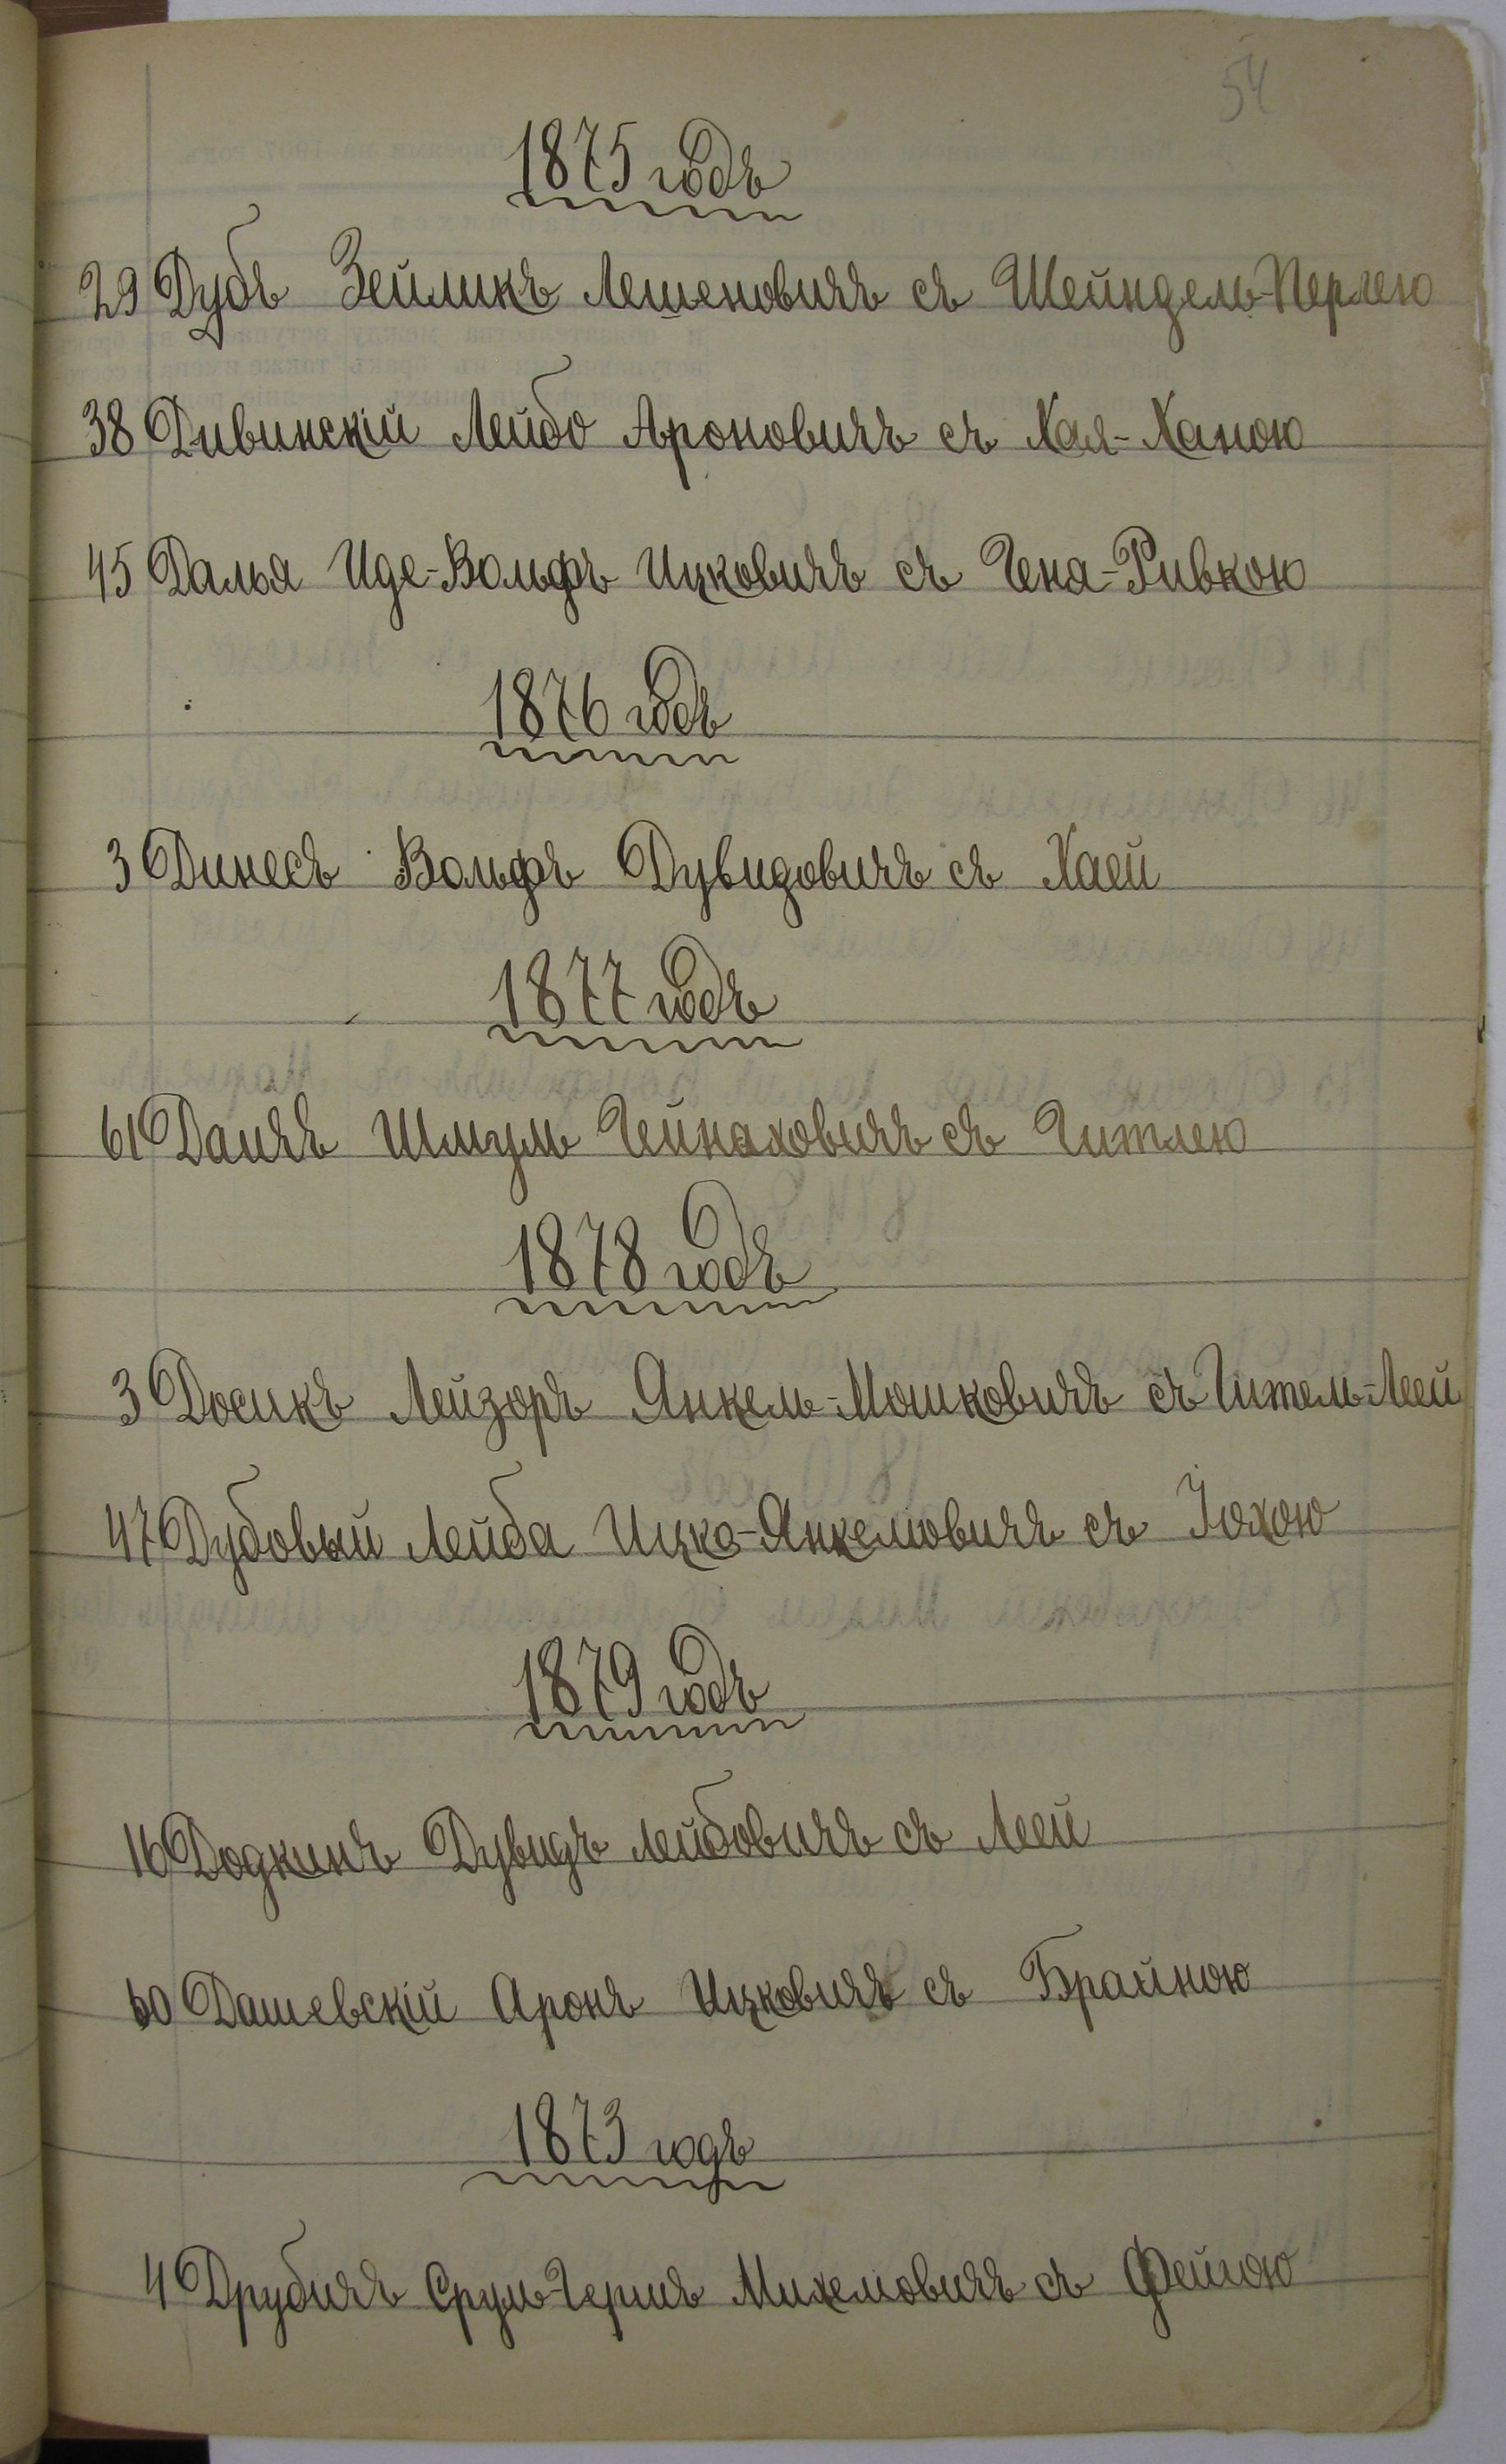 54
1875 годъ
29 Дубъ Зейликъ Лешеновичъ съ Шейндель-Перлею
38 Дивинскій Лейбо Ароновичъ съ Хая-Ханою
45 Далья Иде-Вольфъ Ицковичъ съ Гена-Ривкою
1876 годъ
3 Динесъ Вольфъ Дувидовичъ съ Хаей
1877 годъ
61 Данчъ Шмуль Гейнаховичъ съ Гитлею
1878 годъ
3 Досикъ Лейзоръ Янкель-Мошковичъ съ Гитель-Леей
47 Дубовый Лейба Ицко-Янкелювичъ съ Іохою
1879 годъ
16 Додкинъ Дувидъ Лейбовичъ съ Леей
60 Дашевскій Аронъ Ицковичъ съ Брайною
1873 годъ
4 Друбичъ Сруль-Гершъ Михелювичъ съ Фейгою